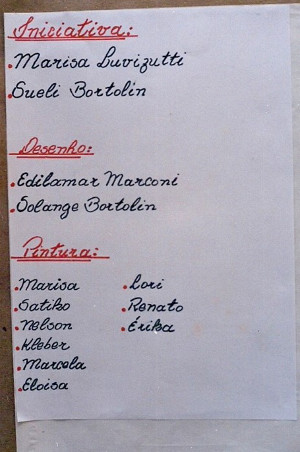 Iniciativa:
.Marisa Luvizutti
.Sueli Bortolin
Desenho:
.Edilamar Marconi
.Solange Bortolin
Pintura:
.Marisa
.Satiko
.Nelson
.Kleber
.Marcela
.Eloisa
.Lori
.Renato
.Érika